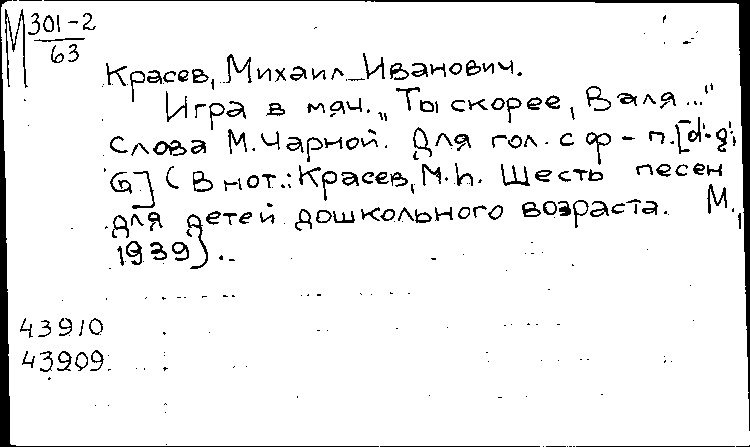 М 301-2
63
Красев, Михаил Иванович.
Игра в мяч. „Ты скорее, Валя..."
Слова М. Чарной. Для гол. с ф-п. [d'-g';
G] (В нот.: Красев, М.И. Шесть песен
для детей дошкольного возраста. М.,
1939)..
43910
43909